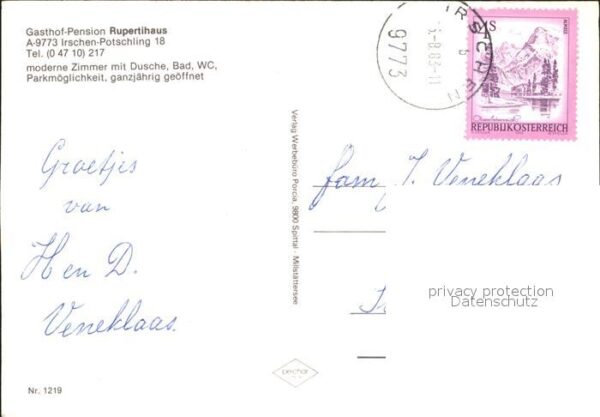 Gasthof-Pension Rupertihaus
A-9773 Irschen-Potschling 18
Tel. (0 47 10) 217
moderne Zimmer mit Dusche, Bad, WC,
Parkmöglichkeit, ganzjährig geöffnet
IRSCHEN
9773
4S
ALMSEE
REPUBLIK ÖSTERREICH
Groetjes
van
H en D.
Veneklaas
Verlag Werbebüro Porcia, 9800 Spittal - Millstättersee
fam J. Veneklaas
privacy protection
Datenschutz
Nr. 1219